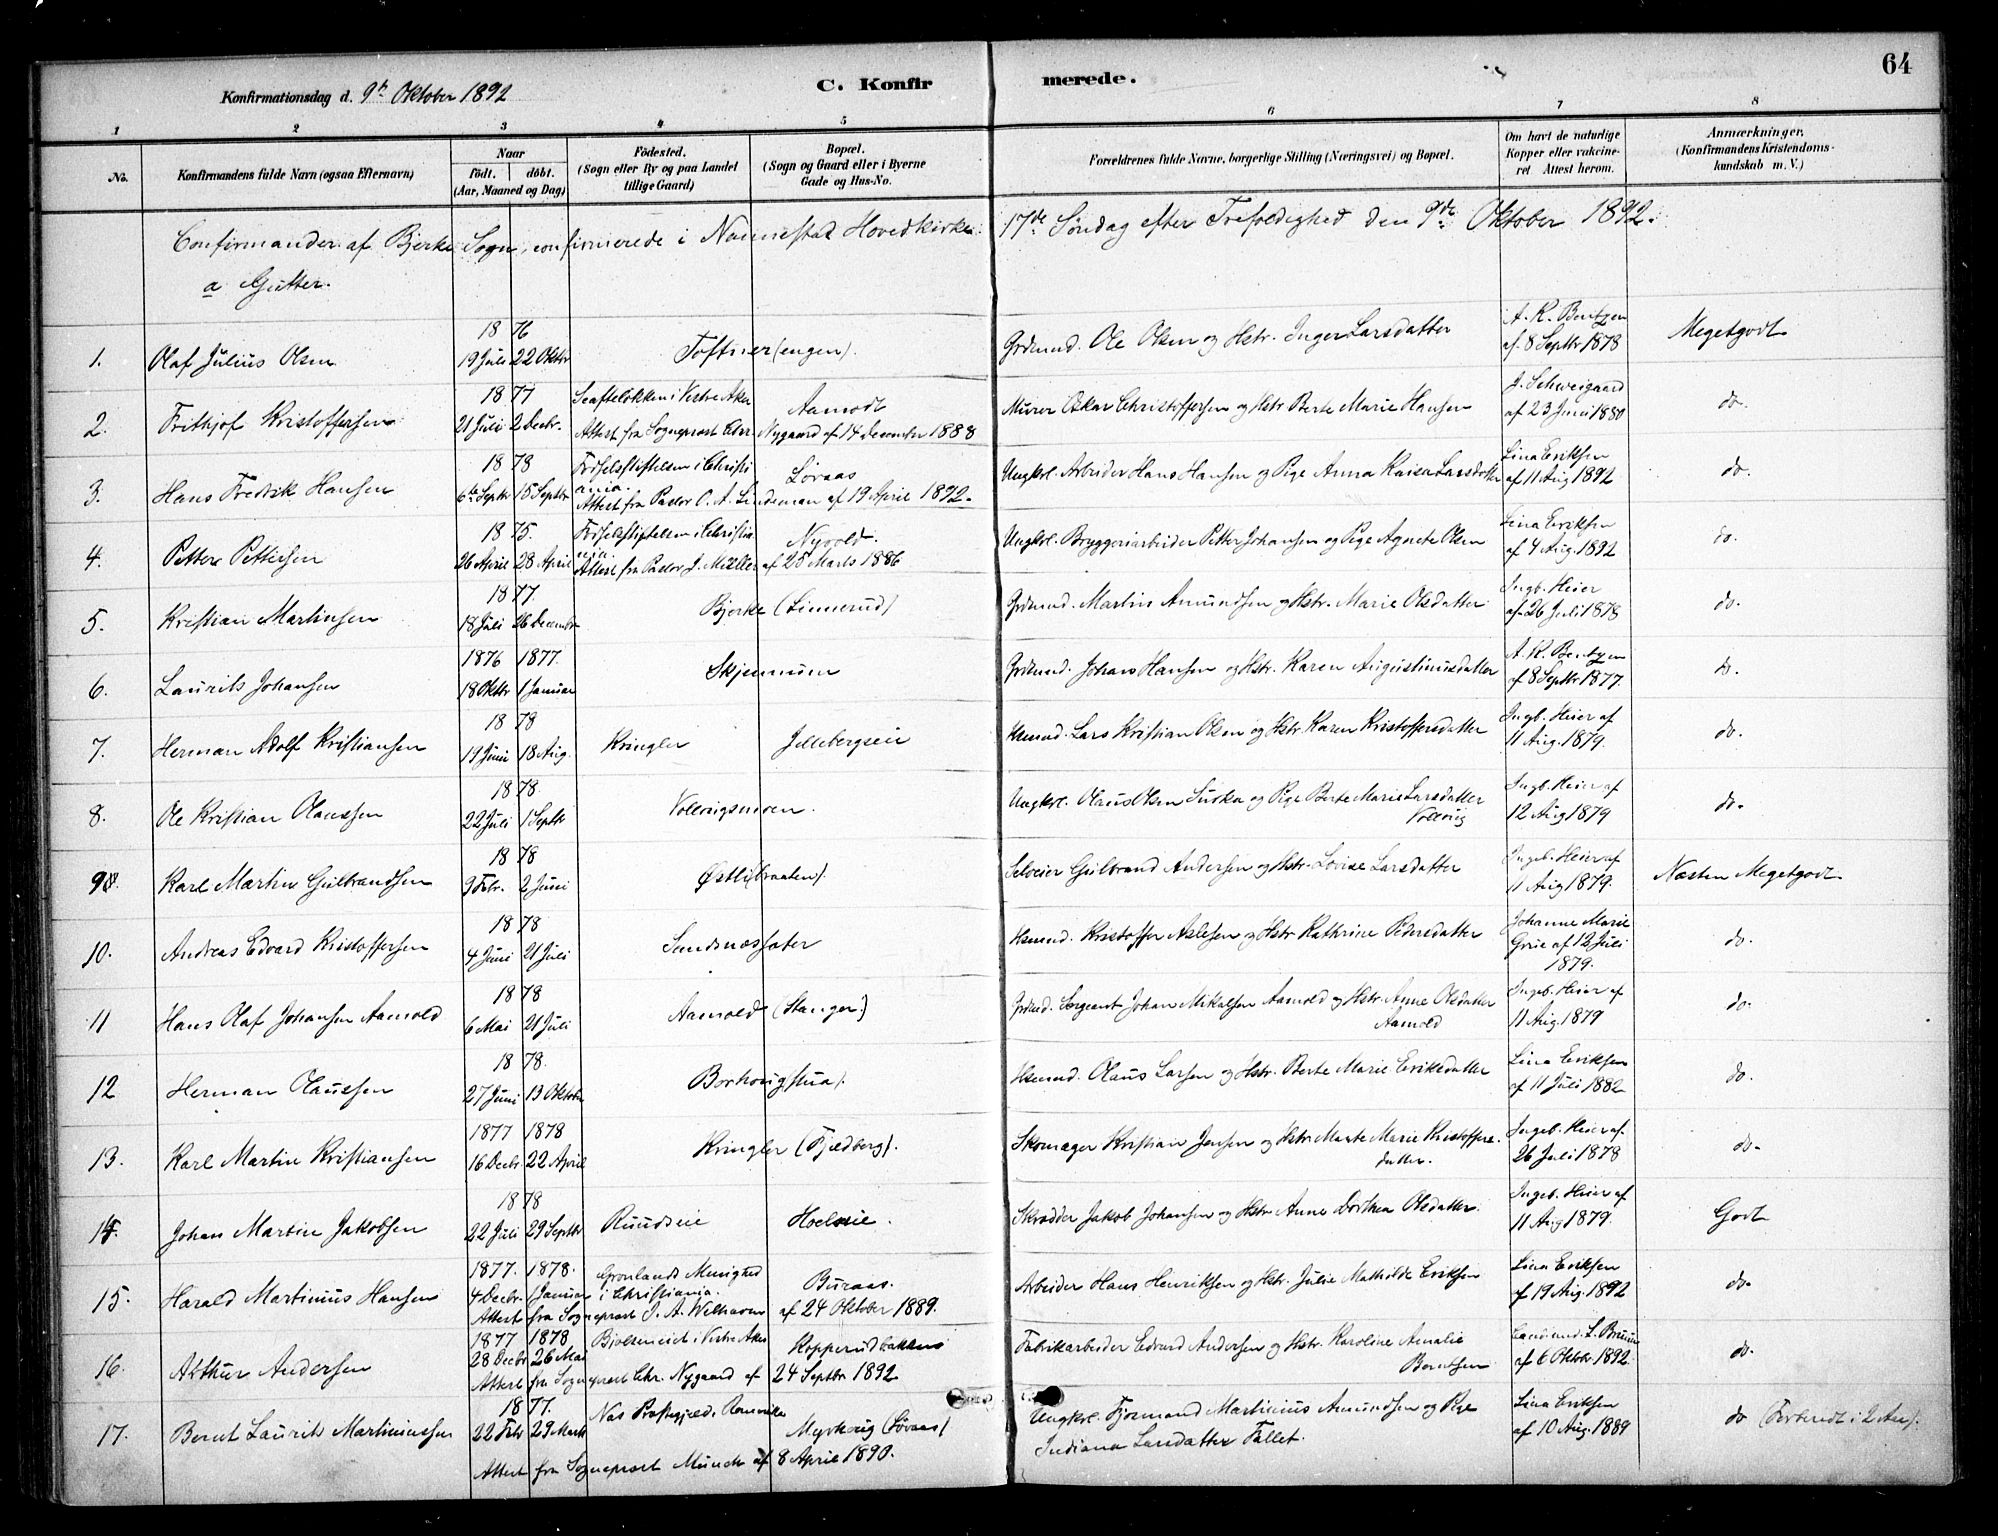 64
Konfirmationsdag d. 9de Oktober 1892
C. Konfirmerede.
1 2 3 4 5 6 7 8
No.
Konfirmandens fulde Navn (ogsaa Efternavn)
Naar födt. döbt. (Aar, Maaned og Dag)
Födested. (Sogn eller By og paa Landet tillige Gaard)
Bopæl. (Sogn og Gaard eller i Byerne Gade og Hus-No.
Forældrenes fulde Navne, borgerlige Stilling (Næringsvei) og Bopæl.
Om havt de naturlige Kopper eller vakcineret Attest herom.
Anmærkninger. (Konfirmandens Kristendomskundskab m. V.)
Confirmander af Bjerke Sogn, confirmerede i Nannestad Hovedkirke 17de Søndag efter Trefoldighed den 9de Oktober 1892.
a Gutter.
1. Olaf Julius Olsen 1876 19 Juli 22 Oktbr Toftner (engen). Grdmnd. Ole Olsen og Hstr. Inger Larsdatter A. K. Bentzen af 8 Septbr 1878 Megetgodt
2. Frithjof Kristoffersen 1877 21 Juli 2 Decbr. i Vestre Aker Aamodt Murer Oskar Christoffersen og Hstr Berte Marie Hansen J. Schweigaard af 23 Juni 1880 do.
Attest fra Sogneprest Chr. Nygaard af 14 December 1888
3. Hans Fredrik Hansen 1878 6te Septbr 15 Septbr Fødselsstiftelsen i Christiania. Løvaas Ungkrl. Arbeider Hans Hansen og Pige Anna Kaisa Larsdatter Lina Eriksen af 11 Aug 1892 do.
Attest fra Pastor O. A. Lindeman af 19 April 1892.
4. Petter Pettersen 1875. 26 April 28 April Fødselsstiftelsen i Christiania. Nyvold. Ungkrl. Bryggeriarbeider Petter Johansen og Pige Agnete Olsen Lina Eriksen af 4 Aug. 1892 do.
Attest fra Pastor J. Müller af 25 Marts 1886
5. Kristian Martinsen 1877. 18 Juli 26 Decembr Bjerke (Linnerud) Grdmnd. Martin Amundsen og Hstr. Marie Olsdatter Ingb. Heier af 26 Juli 1878 do.
6. Laurits Johansen 1876 1877. 18 Oktbr 1 Januar Skjennum Grdmnd. Johans Hansen og Hstr. Karen Augustinusdatter A. K. Bentzen af 8 Septbr 1877. do.
7. Herman Adolf Kristiansen 1878 19 Juni 18 Aug. Kringler Jellebergseie Hsmnd. Lars Kristian Olsen og Hstr Karen Kristoffersdatter Ingb. Heier af 11 Aug. 1879. do.
8. Ole Kristian Olaussen 1878. 22 Juli 1 Septbr Vollaugsmoen. Ungkrl. Olaus Olsen og Pige Berte Marie Larsdatter Ingb. Heier af 12 Aug 1879 do.
9. Karl Martin Gulbrandsen 1878 9 Febr. 2 Juni Østli (braaten). Selveier Gulbrand Andersen og Hstr. Lovise Larsdatter Ingeb. Heier af 11 Aug 1879. Næsten Megetgodt
10. Andreas Edvard Kristoffersen 1878 4 Juni 21 Juli Sandsnæssæter Hsmnd. Kristoffer Aslesen og Hstr Kathrine Pedersdatter Johanne Marie Grue af 12 Juli 1879. do.
11 Hans Olaf Johansen Aamold 1878 6 Mai 21 Juli Aamold (Stanger) Grdmd. Sergeant Johan Mikalsen Aamold og Hstr. Anne Olsdatter Aamold Ingeb. Heier af 11 Aug. 1879 do.
12 Herman Olaussen 1878. 27 Juni 13 Oktober Borhoug (stua). Hsmnd. Olaus Larsen og Hstr. Berte Marie Eriksdatter Lina Eriksen af 11 Juli 1882 do.
13. Karl Martin Kristiansen 1877 1878 16 Decbr. 22 April Kringler (Fjeldberg). Skomager Kristian Jensen og Hstr Marte Marie Kristoffersdatter. Ingeb. Heier af 26 Juli 1878 do.
14. Johan Martin Jakobsen 1878 22 Juli 29 Septbr Ruudseie Hoelseie. Skrædder Jakob Johansen og Hstr Anne Dorthea Olsdatter. Ingeb. Heier af 11 Aug 1879. Godt
15. Harald Martinius Hansen 1877. 1878. 4 Decbr. 1 Januar Grønlands Menighed i Christiania. Buraas. Arbeider Hans Henriksen og Hstr. Julie Mathilde Eriksen Lina Eriksen af 19 Aug. 1892 do.
Attest fra Sogneprest J. A. Welhaven af 24 Oktober 1889.
16. Arthur Andersen 1877 1878 28 Decbr 26 Mai Bjølseneiet i Vestre Aker Kopperudbakken Fabrikarbeider Edvard Andersen og Hstr. Karoline Amalie Berntsen L. Bruun af 6 Oktbr. 1892. do.
Attest fra Sogneprest Chr. Nygaard af 24 Septbr 1892
17. Bernt Laurits Martiniussen 1877. 22 Febr 29 Marts Nas Præstegjeld, Romerike Myrhoug (Løvaas) Ungkrl. Fjørmand Martinius Amundsen og Pige Indiana Larsdatter Fallet. Lina Eriksen af 10 Aug. 1889 do (Forberedt i 2 Aar).
Attest fra Sogneprest Münch af 8 April 1890.